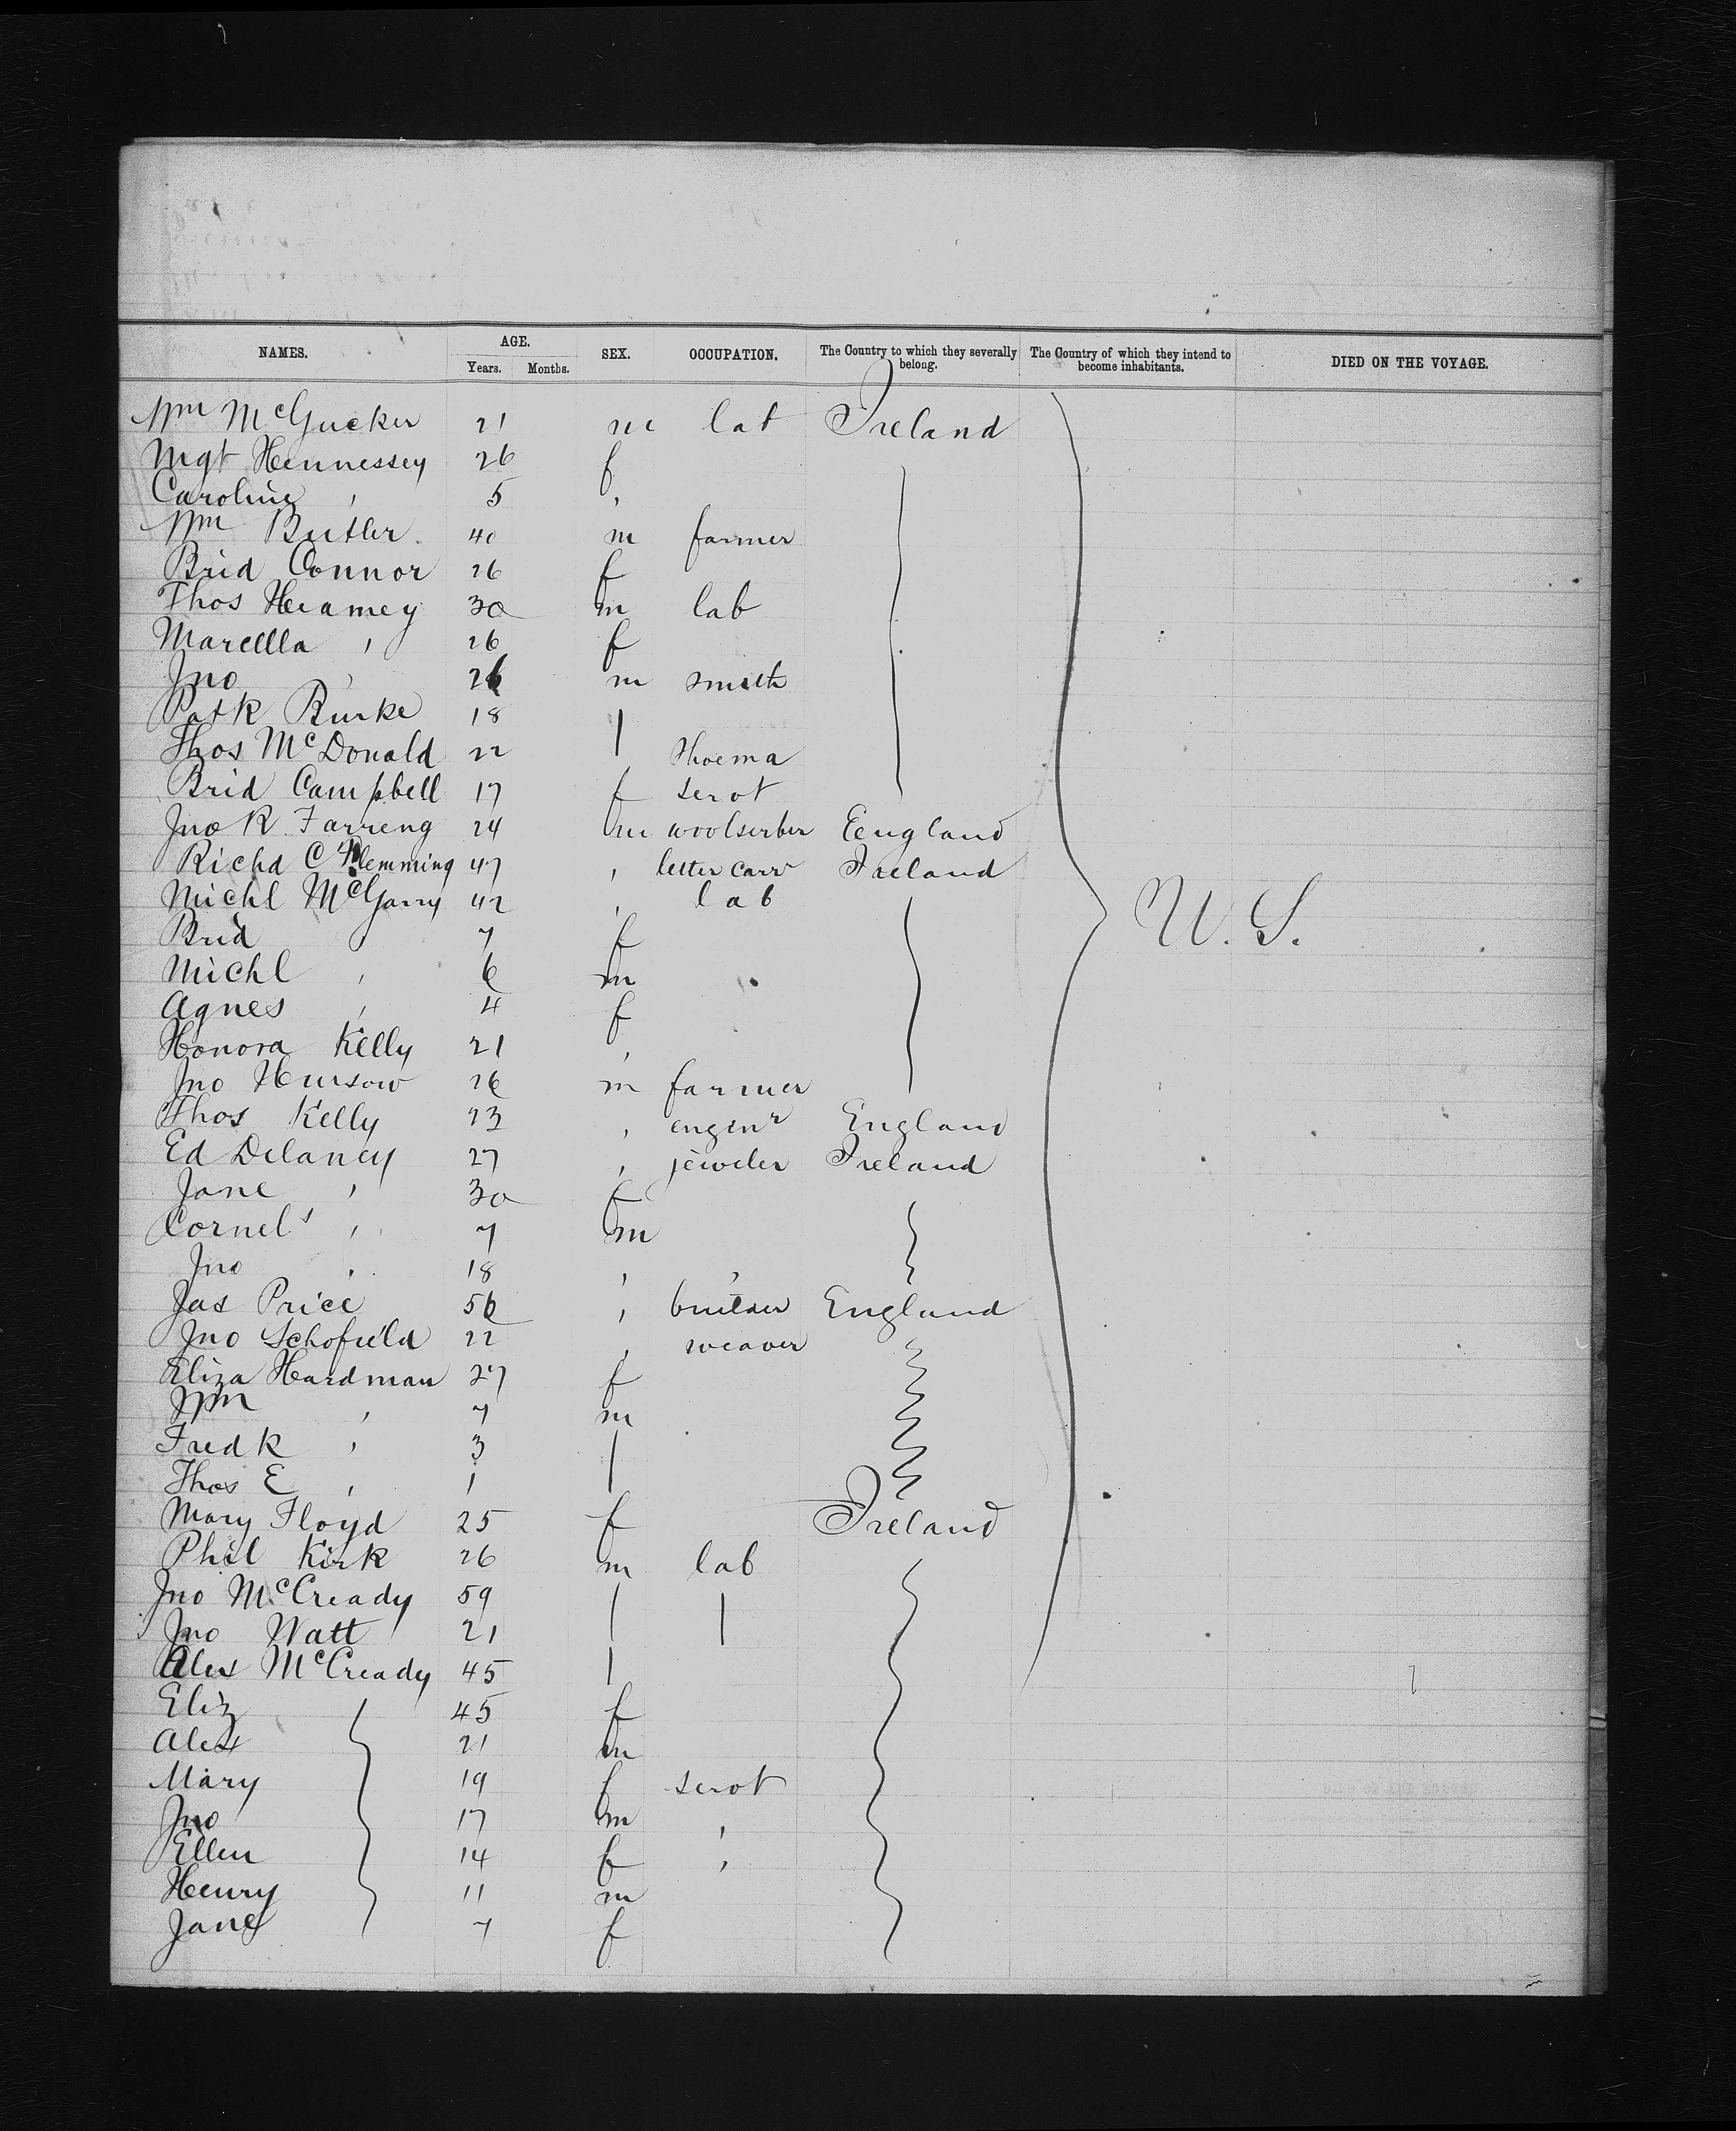 NAMES. AGE. Years. Months. SEX. OCCUPATION. The Country to which they severally belong. The Country of which they intend to become inhabitants. DIED ON THE VOYAGE.
Wm McGucker 21 m lab Ireland
Mgt Hennessey 26 f
Caroline , 5 ,
Wm Butler 40 m farmer
Brid Connor 26 f
Thos Heamey 30 m lab
Marcella , 26 f
Jno , 26 m smith
Patk Burke 18 |
Thos McDonald 22 shoema
Brid Campbell 17 f servt
Jno R. Farreng 24 m England
Richd C Flemming 47 , letter carr Ireland
Michl McGarry 42 , lab
Brid , 7 f
Michl , 6 m
Agnes , 4 f
Honora Kelly 21 ,
Jno 26 m farmer
Thos Kelly 23 , enginr England
Ed Delaney 27 , jeweler Ireland
Jane , 30 f
Cornels , 7 m
Jno , 18 , ,
Jas Price 56 , builder England
Jno Schofield 22 , weaver
Eliza Hardman 27 f
Wm , 7 m
Fredk , 3 |
Thos E , 1
Mary Floyd 25 f Ireland
Phil Kirk 26 m lab
Jno McCready 59 | |
Jno Watt 21
Alex McCready 45 |
Eliz 45 f
Alex 21 m
Mary 19 f servt
Jno 17 m ,
Ellen 14 f ,
Henry 11 m
Jane 7 f
U. S.